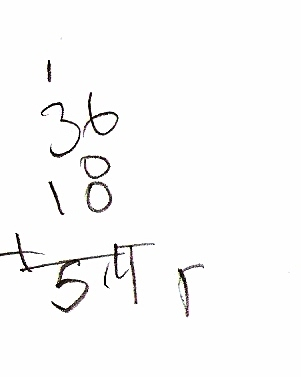 1
36
18
+
54 r